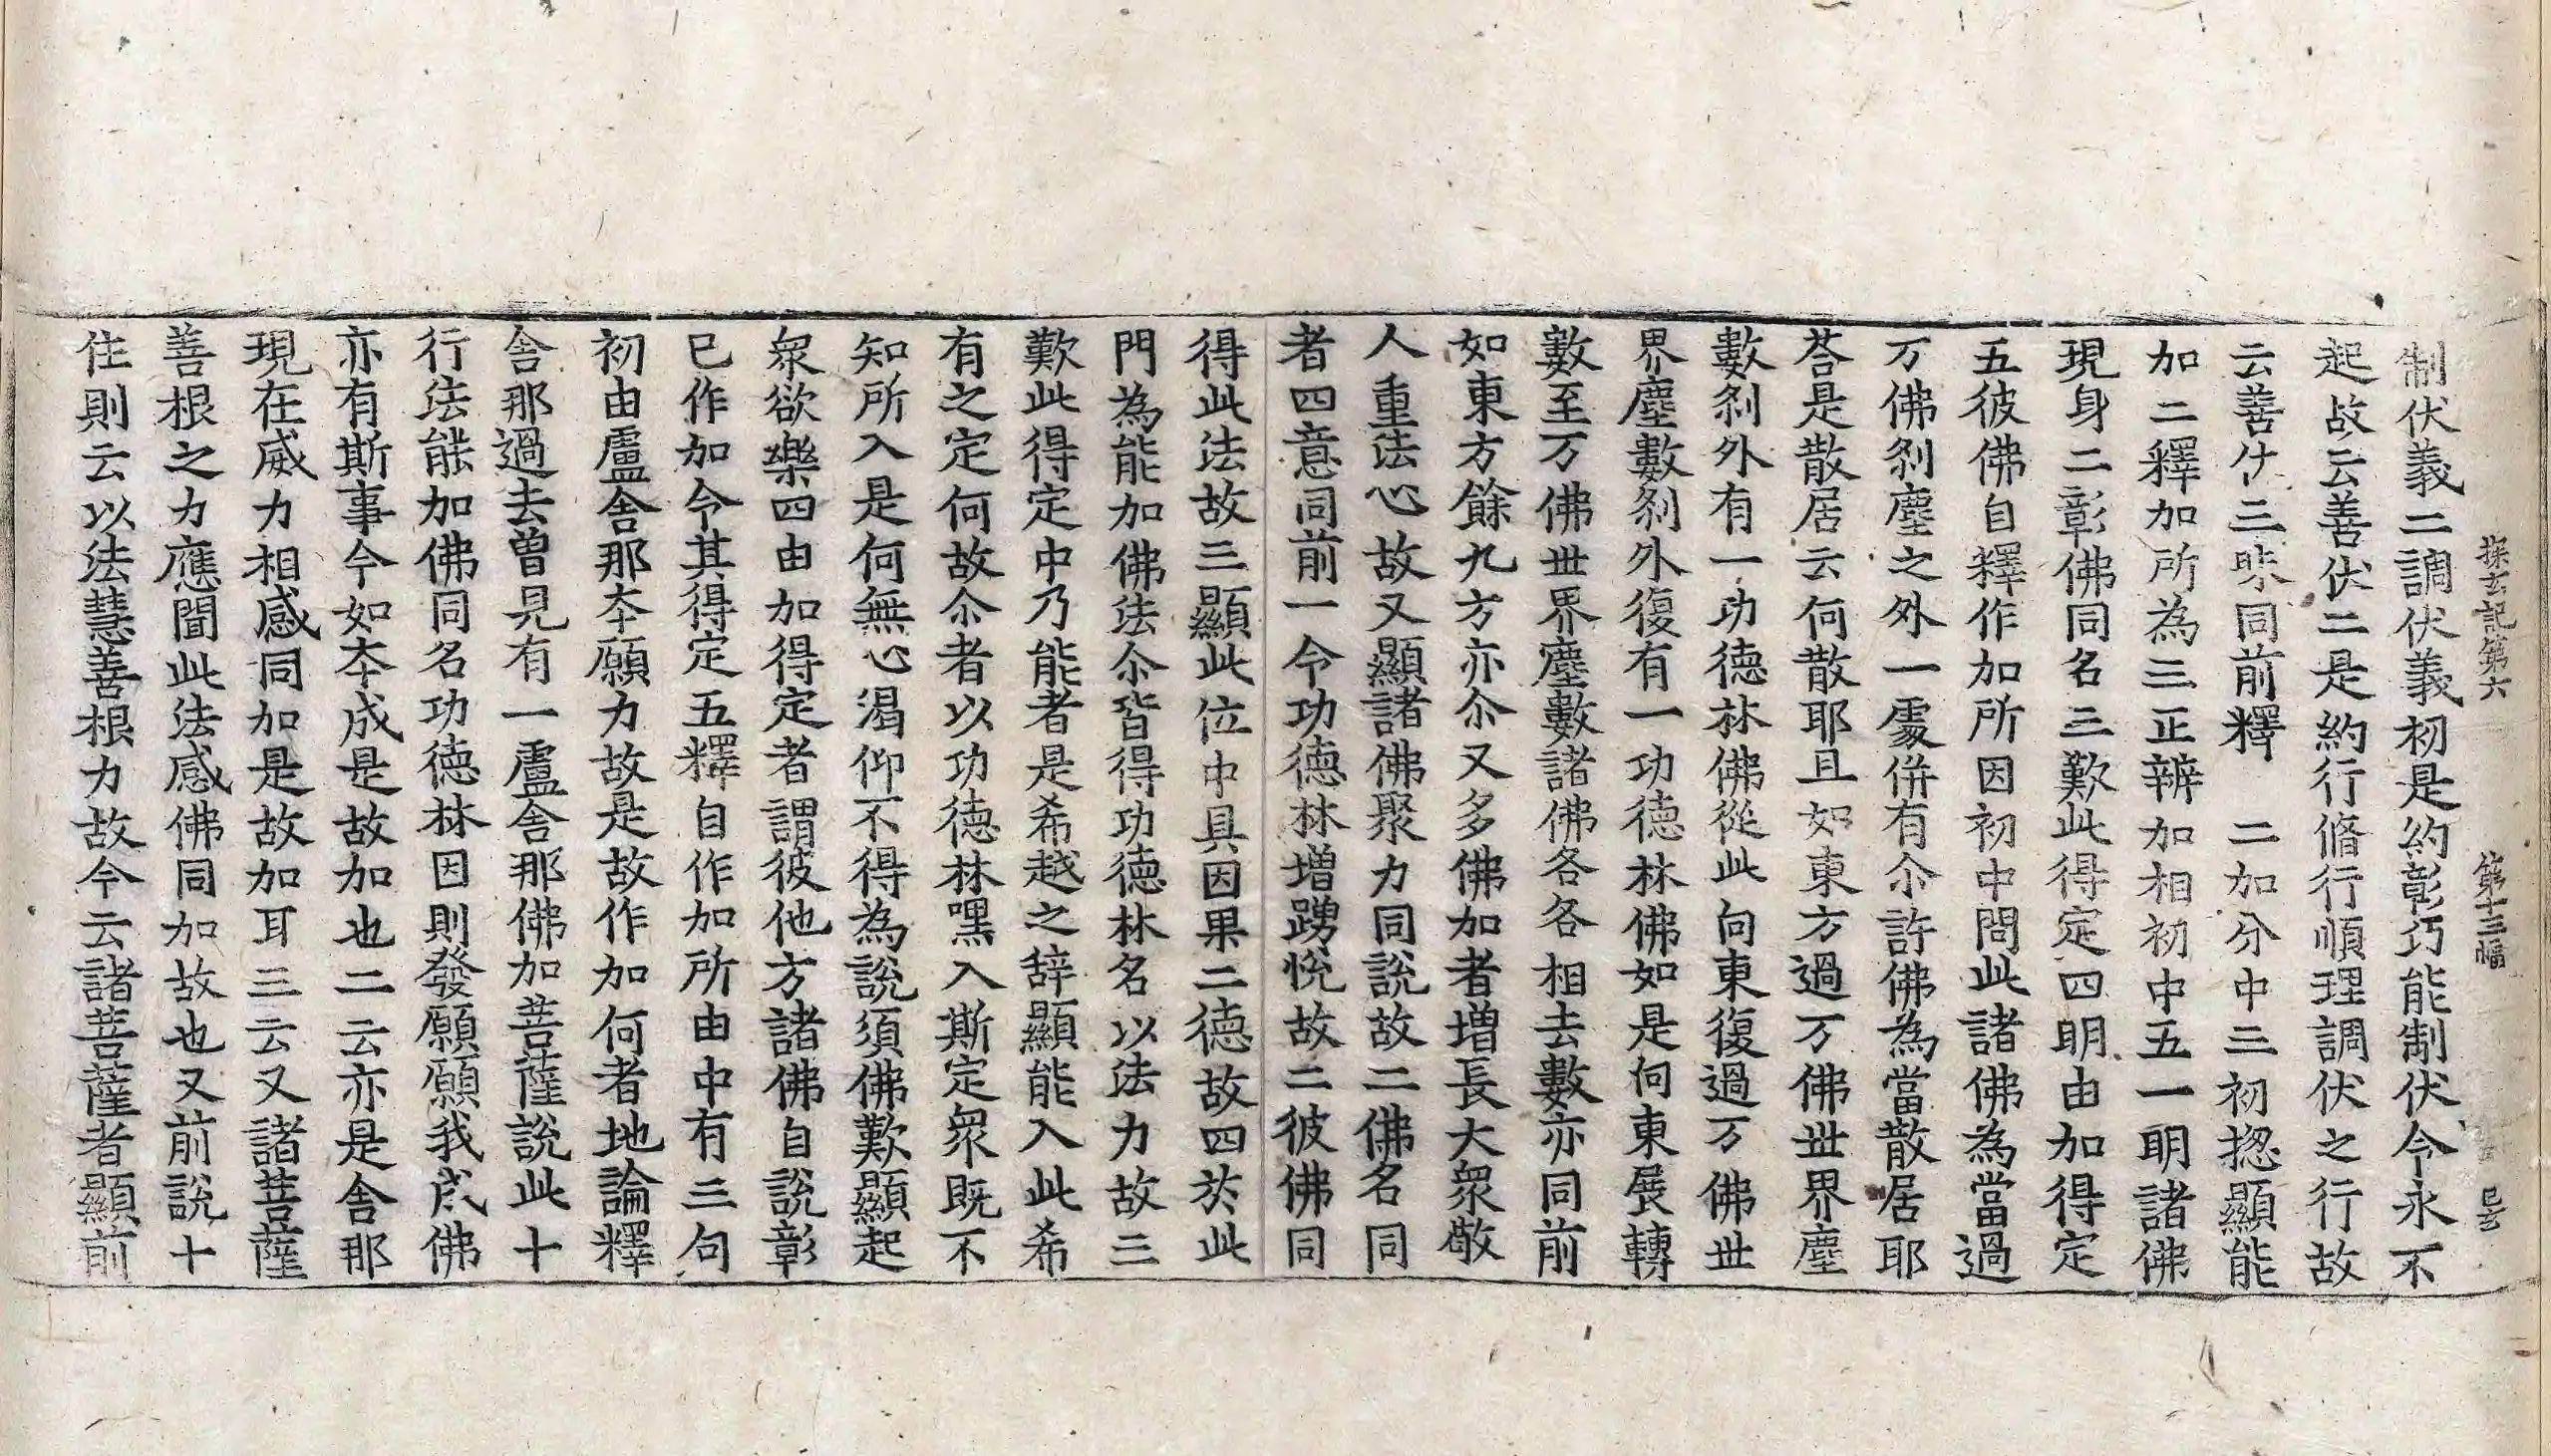 探玄記第六　第十三幅
制伏義二調伏義初是約彰巧能制伏令永不
起故云善伏二是約行脩行順理調伏之行故
云善伏三昧同前釋　二加分中三初揔顯能
加二釋加所為三正辨加相初中五一明諸佛
現身二彰佛同名三歎此得定四明由加得定
五彼佛自釋作加所因初中問此諸佛為當過
万佛剎塵之外一處併有尒許佛為當散居耶
荅是散居云何散耶且如東方過万佛世界塵
數剎外有一功德林佛從此向東復過万佛世
界塵數剎外復有一功德林佛如是向東展轉
數至万佛世界塵數諸佛各各相去數亦同前
如東方餘九方亦尒又多佛加者增長大眾敬
人重法心故又顯諸佛聚力同說故二佛名同
者四意同前一令功德林增踴悅故二彼佛同
得此法故三顯此位中具因果二德故四於此
門為能加佛法尒皆得功德林名以法力故三
歎此得定中乃能者是希越之辞顯能入此希
有之定何故尒者以功德林嘿入斯定眾既不
知所入是何無心渴仰不得為說須佛歎顯起
眾欲樂四由加得定者謂彼他方諸佛自說彰
已作加令其得定五釋自作加所由中有三句
初由盧舍那夲願力故是故作加何者地論釋
舍那過去曾見有一盧舍那佛加菩薩說此十
行法能加佛同名功德林因則發願願我成佛
亦有斯事今如夲成是故加也二云亦是舍那
現在威力相感同加是故加耳三云又諸菩薩
善根之力應聞此法感佛同加故也又前說十
住則云以法慧善根力故今云諸菩薩者顯前